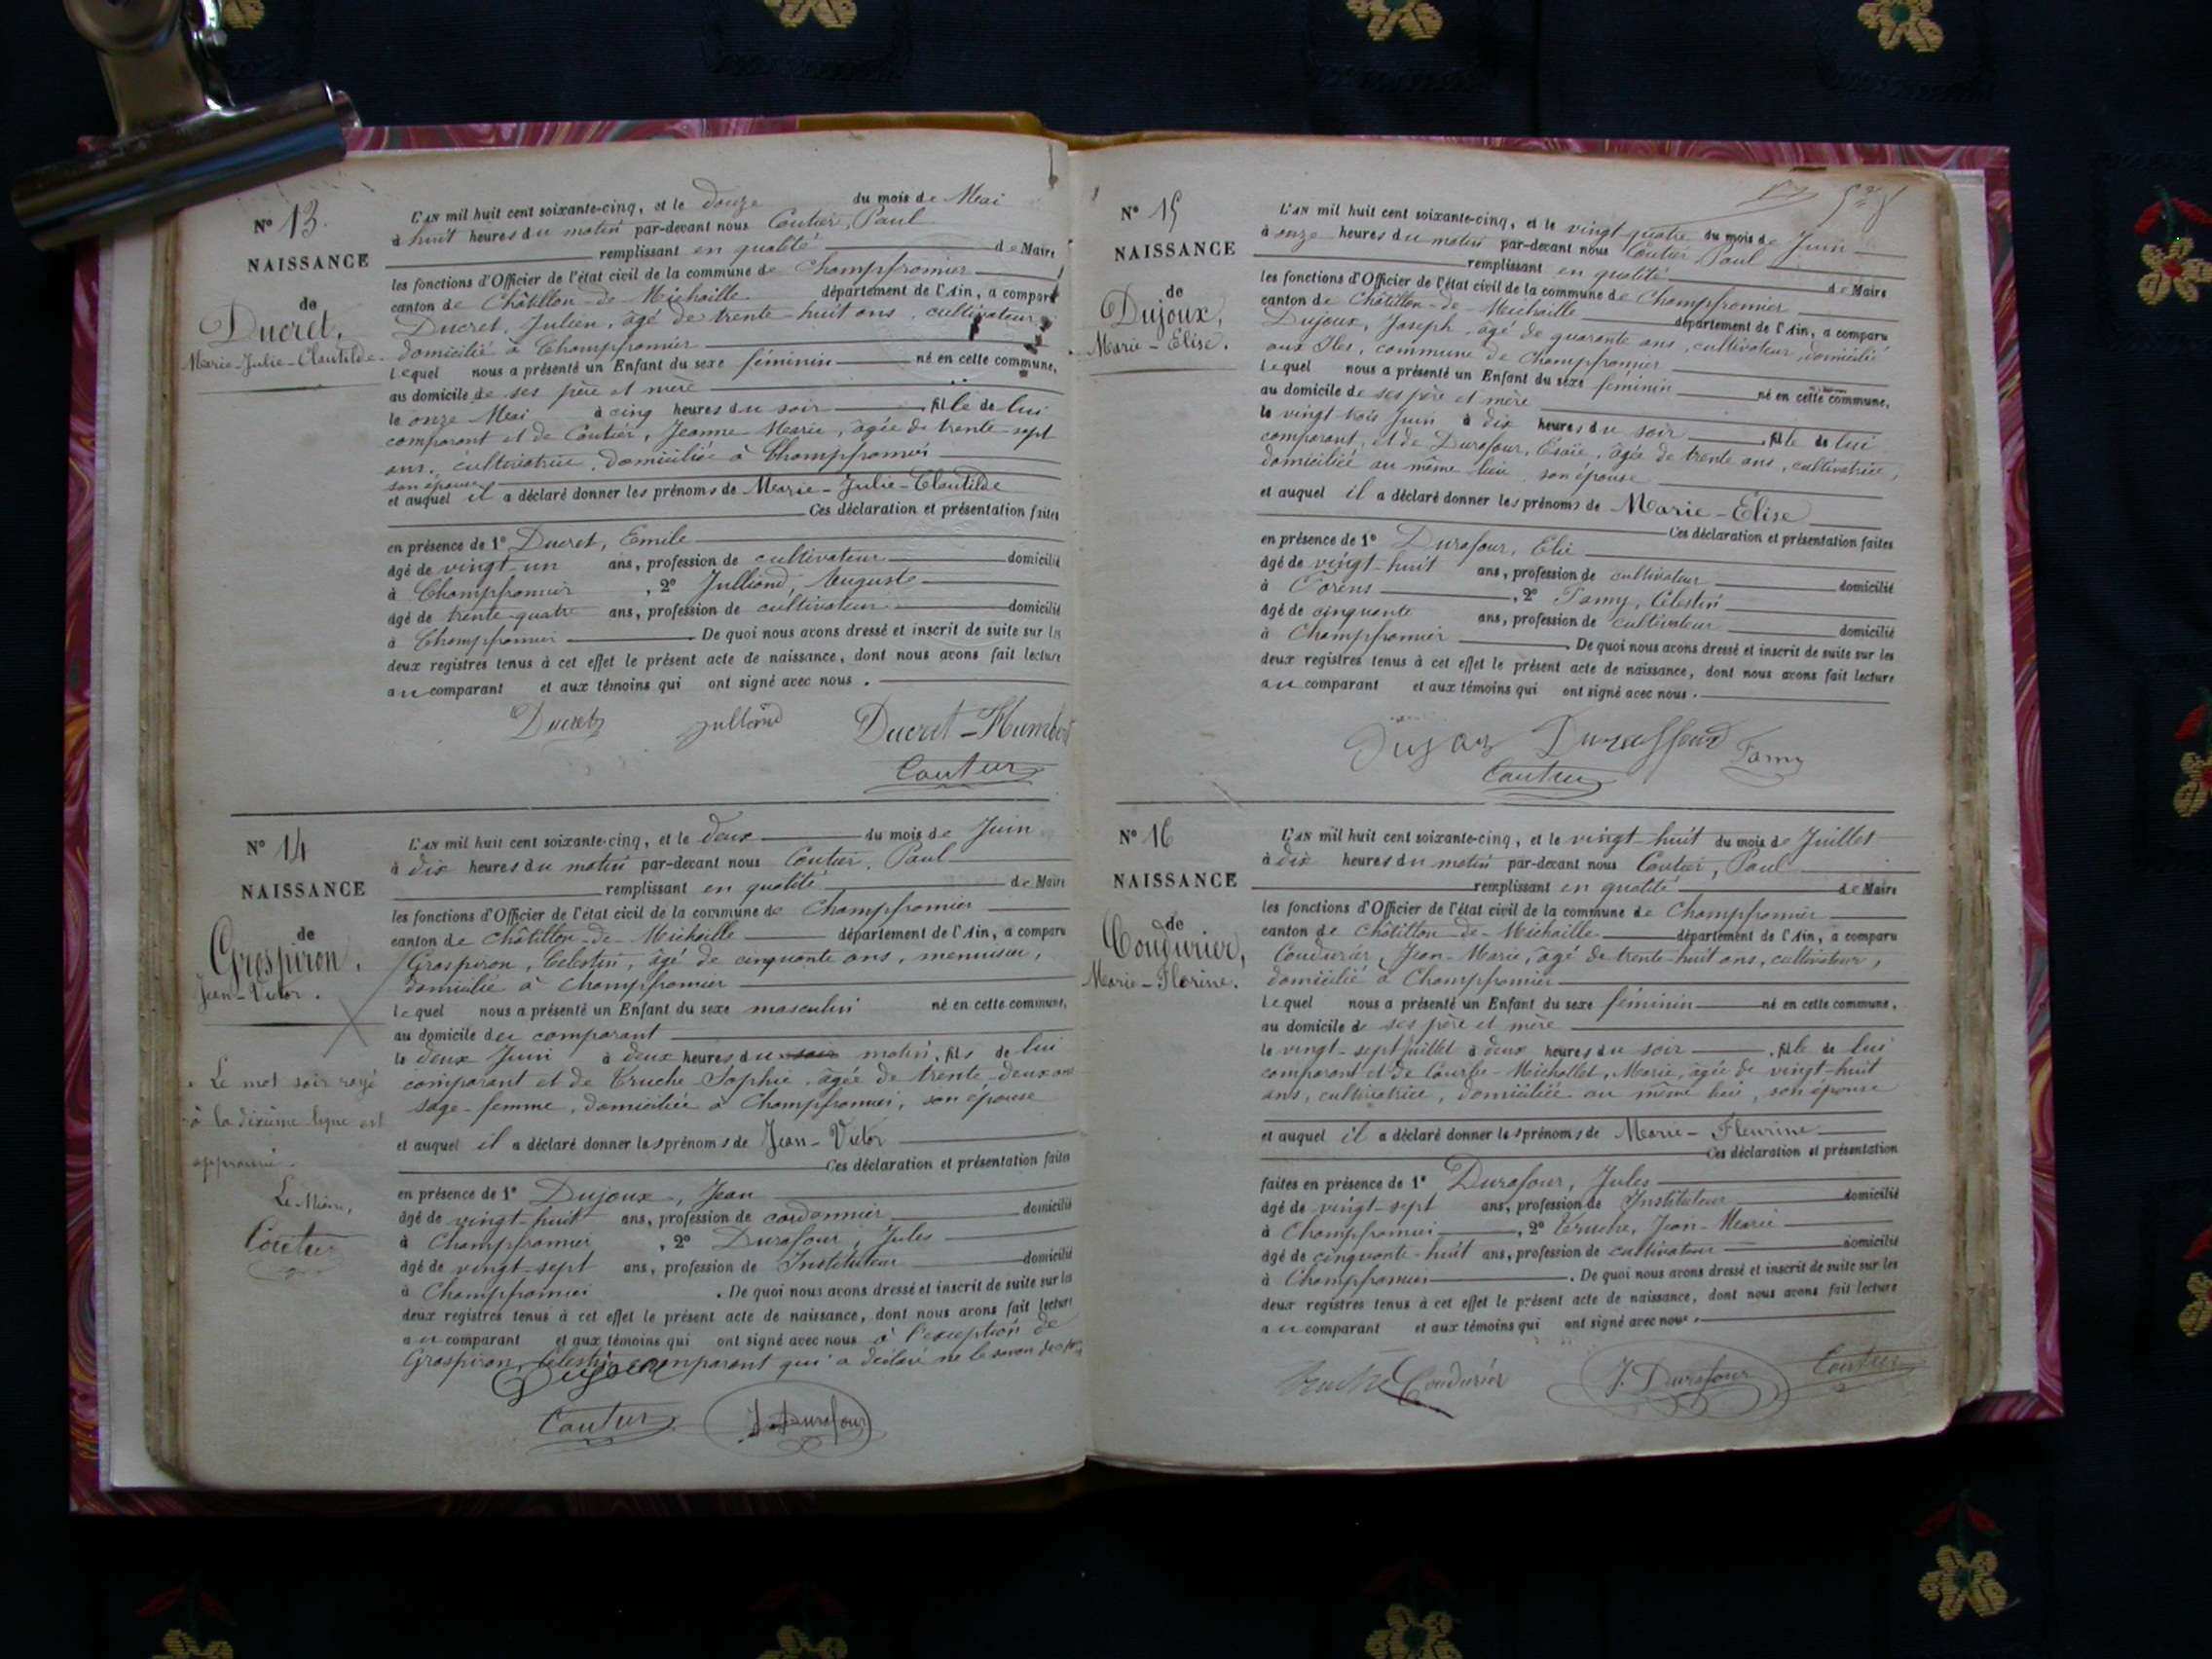 N° 13.
NAISSANCE
de
Ducret,
Marie-Julie-Clautilde.
L'AN mil huit cent soixante-cinq, et le douze du mois de Mai
à huit heures du matin par-devant nous Coutier, Paul
remplissant en qualité de Maire
les fonctions d'Officier de l'état civil de la commune de Champfromier
canton de Châtillon-de-Michaille département de l'Ain, a comparu
Ducret, Julien, âgé de trente-huit ans, cultivateur,
domicilié à Champfromier
lequel nous a présenté un Enfant du sexe féminin né en cette commune,
au domicile de ses père et mère
le onze Mai à cinq heures du soir fille de lui
comparant et de Coutier, Jeanne-Marie, âgée de trente-sept
ans, cultivatrice, domiciliée à Champfromier
son épouse
et auquel il a déclaré donner les prénoms de Marie-Julie-Clautilde
Ces déclaration et présentation faites
en présence de 1° Ducret, Emile
âgé de vingt-un ans, profession de cultivateur domicilié
à Champfromier, 2° Julliand, Auguste
âgé de trente-quatre ans, profession de cultivateur domicilié
à Champfromier. De quoi nous avons dressé et inscrit de suite sur les
deux registres tenus à cet effet le présent acte de naissance, dont nous avons fait lecture
au comparant et aux témoins qui ont signé avec nous.
Ducret Julliand Ducret-Humbert
Coutier
N° 14
NAISSANCE
de
Grospiron,
Jean-Victor.
Le mot soir rayé
à la dixième ligne est
approuvé.
Le Maire,
Coutier
L'AN mil huit cent soixante-cinq, et le deux du mois de Juin
à dix heures du matin par-devant nous Coutier, Paul
remplissant en qualité de Maire
les fonctions d'Officier de l'état civil de la commune de Champfromier
canton de Châtillon-de-Michaille département de l'Ain, a comparu
Grospiron, Célestin, âgé de cinquante ans, menuisier,
domicilié à Champfromier
lequel nous a présenté un Enfant du sexe masculin né en cette commune,
au domicile du comparant
le deux Juin à deux heures du soir matin, fils de lui
comparant et de Truche Sophie, âgée de trente-deux ans
sage-femme, domiciliée à Champfromier, son épouse
et auquel il a déclaré donner les prénoms de Jean-Victor
Ces déclaration et présentation faites
en présence de 1° Dujoux, Jean
âgé de vingt-huit ans, profession de cordonnier domicilié
à Champfromier, 2° Durafour, Jules
âgé de vingt-sept ans, profession de Instituteur domicilié
à Champfromier. De quoi nous avons dressé et inscrit de suite sur les
deux registres tenus à cet effet le présent acte de naissance, dont nous avons fait lecture
au comparant et aux témoins qui ont signé avec nous à l'exception de
Grospiron, Célestin comparant qui a déclaré ne le savoir
Dujoux
Coutier J. Durafour
N° 15
NAISSANCE
de
Dujoux,
Marie-Elise.
L'AN mil huit cent soixante-cinq, et le vingt quatre du mois de Juin
à onze heures du matin par-devant nous Coutier, Paul
remplissant en qualité de Maire
les fonctions d'Officier de l'état civil de la commune de Champfromier
canton de Châtillon-de-Michaille département de l'Ain, a comparu
Dujoux, Joseph, âgé de quarante ans, cultivateur, domicilié
aux Iles, commune de Champfromier
lequel nous a présenté un Enfant du sexe féminin né en cette commune,
au domicile de ses père et mère
le vingt trois Juin à dix heures du soir, fille de lui
comparant, et de Durafour, Esaïe, âgée de trente ans, cultivatrice,
domiciliée au même lieu, son épouse
et auquel il a déclaré donner les prénoms de Marie-Elise
Ces déclaration et présentation faites
en présence de 1° Durafour, Elie
âgé de vingt-huit ans, profession de cultivateur domicilié
à Corens, 2° Famy, Célestin
âgé de cinquante ans, profession de cultivateur domicilié
à Champfromier. De quoi nous avons dressé et inscrit de suite sur les
deux registres tenus à cet effet le présent acte de naissance, dont nous avons fait lecture
au comparant et aux témoins qui ont signé avec nous.
Famy
Coutier
N° 16
NAISSANCE
de
Coudurier,
Marie-Florine.
L'AN mil huit cent soixante-cinq, et le vingt huit du mois de Juillet
à dix heures du matin par-devant nous Coutier, Paul
remplissant en qualité de Maire
les fonctions d'Officier de l'état civil de la commune de Champfromier
canton de Châtillon-de-Michaille département de l'Ain, a comparu
Coudurier, Jean-Marie, âgé de trente-huit ans, cultivateur,
domicilié à Champfromier
lequel nous a présenté un Enfant du sexe féminin né en cette commune,
au domicile de ses père et mère
le vingt-sept Juillet à deux heures du soir, fille de lui
comparant et de Tournier-Michollet, Marie, âgée de vingt-huit
ans, cultivatrice, domiciliée au même lieu, son épouse
et auquel il a déclaré donner les prénoms de Marie-Fleurine
Ces déclaration et présentation
faites en présence de 1° Durafour, Jules
âgé de vingt-sept ans, profession de Instituteur domicilié
à Champfromier, 2° Truche, Jean-Marie
âgé de cinquante-huit ans, profession de cultivateur domicilié
à Champfromier. De quoi nous avons dressé et inscrit de suite sur les
deux registres tenus à cet effet le présent acte de naissance, dont nous avons fait lecture
au comparant et aux témoins qui ont signé avec nous.
Truche Coudurier J. Durafour Coutier